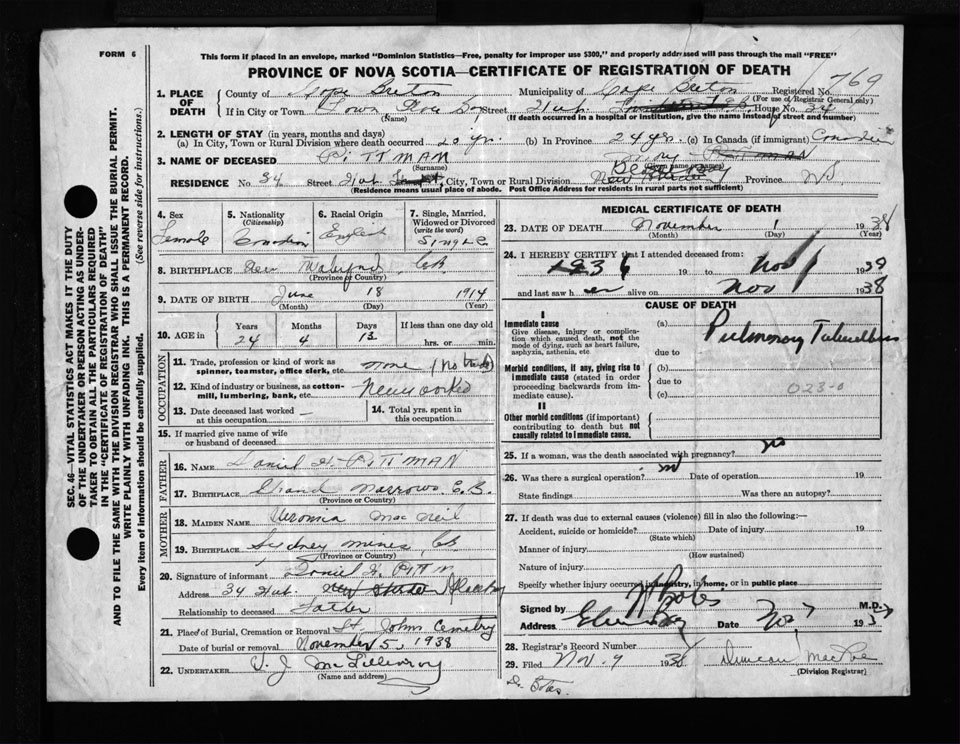 FORM 6
This form if placed in an envelope, marked "Dominion Statistics—Free, penalty for improper use $300," and properly addressed will pass through the mail "FREE"
PROVINCE OF NOVA SCOTIA—CERTIFICATE OF REGISTRATION OF DEATH
769
1. PLACE OF DEATH
County of Cape Breton Municipality of Cape Breton Registered No.
(For use of Registrar General only)
If in City or Town Street House No. 34
(Name) (If death occurred in a hospital or institution, give the name instead of street and number)
2. LENGTH OF STAY (in years, months and days)
(a) In City, Town or Rural Division where death occurred 20 yrs. (b) In Province 24 yrs. (c) In Canada (if immigrant) Canadian
3. NAME OF DECEASED PITTMAN
(Surname) (Given name or names)
RESIDENCE No. 34 Street City, Town or Rural Division Province N.S.
(Residence means usual place of abode. Post Office Address for residents in rural parts not sufficient)
4. Sex
Female
5. Nationality
(Citizenship)
Canadian
6. Racial Origin
English
7. Single, Married, Widowed or Divorced
(write the word)
SINGLE
8. BIRTHPLACE New Waterford, CB
(Province or Country)
9. DATE OF BIRTH June 18 1914
(Month) (Day) (Year)
10. AGE in
Years Months Days If less than one day old
24 4 13 hrs. or min.
OCCUPATION
11. Trade, profession or kind of work as spinner, teamster, office clerk, etc. none (no trade)
12. Kind of industry or business, as cotton-mill, lumbering, bank, etc. Never worked
13. Date deceased last worked at this occupation
14. Total yrs. spent in this occupation
15. If married give name of wife or husband of deceased
FATHER
16. NAME Daniel H. PITTMAN
17. BIRTHPLACE Grand Narrows C.B.
(Province or Country)
MOTHER
18. MAIDEN NAME Veronica Mac Neil
19. BIRTHPLACE Sydney Mines, CB
(Province or Country)
20. Signature of informant Daniel H. Pittm
Address 34
Relationship to deceased Father
21. Place of Burial, Cremation or Removal St. Johns Cemetery
Date of burial or removal November 5, 1938
22. UNDERTAKER V. J. McGillivray
(Name and address)
MEDICAL CERTIFICATE OF DEATH
23. DATE OF DEATH November 1 1938
(Month) (Day) (Year)
24. I HEREBY CERTIFY that I attended deceased from:
1936 19 to Nov 1 1939
and last saw her alive on Nov 1 1938
CAUSE OF DEATH
I
Immediate cause
Give disease, injury or complication which caused death, not the mode of dying, such as heart failure, asphyxia, asthenia, etc
(a) Pulmonary Tuberculosis
due to
Morbid conditions, if any, giving rise to immediate cause (stated in order proceeding backwards from immediate cause).
(b)
due to
(c) 023-0
II
Other morbid conditions (if important) contributing to death but not causally related to immediate cause.
25. If a woman, was the death associated with pregnancy? no
26. Was there a surgical operation? no Date of operation 19
State findings Was there an autopsy?
27. If death was due to external causes (violence) fill in also the following:—
Accident, suicide or homicide? Date of injury 19
(State which)
Manner of injury
(How sustained)
Nature of injury
Specify whether injury occurred in industry, in home, or in public place
Signed by M.D.
Address Glace Bay Date Nov 7 193
28. Registrar's Record Number
29. Filed Nov. 9 1938 Duncan
(Division Registrar)
SEC. 46—VITAL STATISTICS ACT MAKES IT THE DUTY OF THE UNDERTAKER OR PERSON ACTING AS UNDERTAKER TO OBTAIN ALL THE PARTICULARS REQUIRED IN THE "CERTIFICATE OF REGISTRATION OF DEATH"
AND TO FILE THE SAME WITH THE DIVISION REGISTRAR WHO SHALL ISSUE THE BURIAL PERMIT.
WRITE PLAINLY WITH UNFADING INK. THIS IS A PERMANENT RECORD.
Every item of information should be carefully supplied. (See reverse side for instructions.)